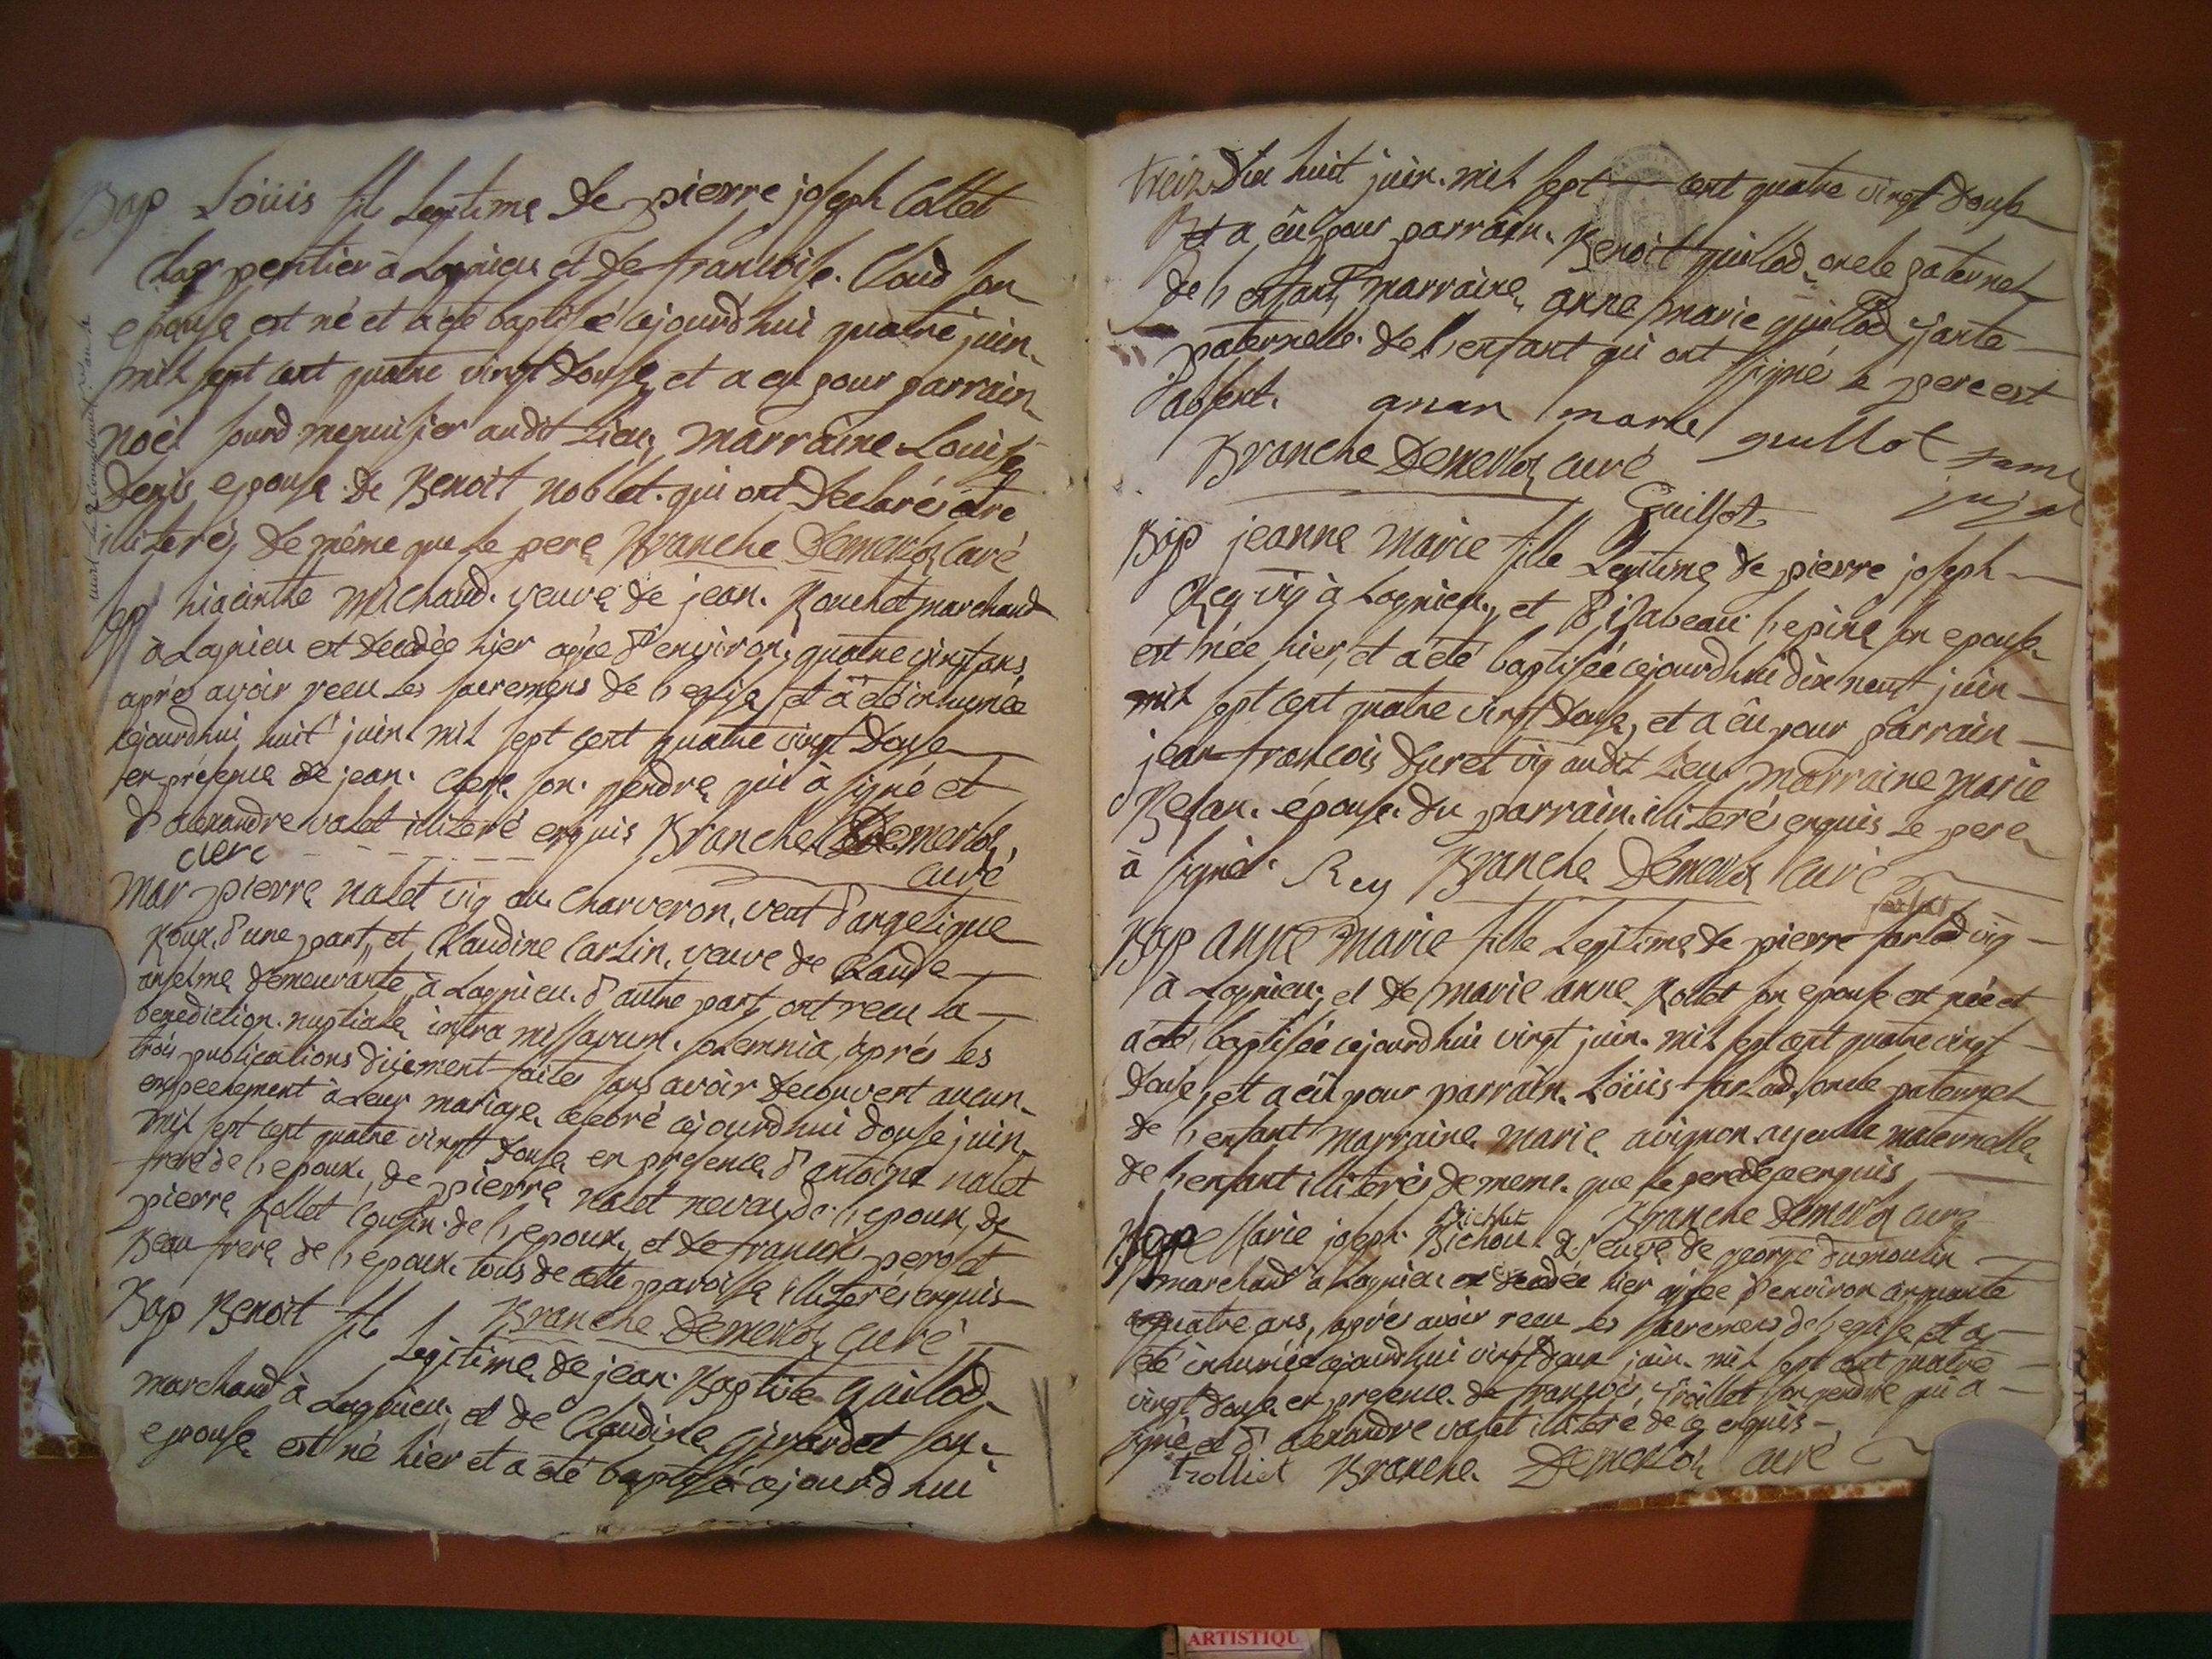 Bap Loüis fils Legitime de pierre joseph Collet
charpentier à Lagnieu et de francoise Claud son
epouse est né et a été baptisé cejourdhui quatre juin
mil sept cent quatre vingt douse, et a eu pour parrain
noël sourd menuisier audit Lieu, marraine Louise
Denis epouse de Benoit noblet qui ont declarés etre
illiterés de même que le pere Branche Demerloz Curé
Sep hiacinthe Michaud veuve de jean Rouchet marchand
à Lagnieu est decedée hier agée d'environ quatre vingt ans
aprés avoir recu les sacremens de l'eglise et a été inhumée
cejourdhui huit juin mil sept cent quatre vingt douse
en présence de jean Clere son gendre qui à signé et
d'alexandre valet illiteré enquis Branche Demerloz
clerc curé
Mar pierre nalet vig au Charveron, veuf d'angelique
Roux, d'une part, et Claudine Carlin, veuve de Claude
anselme demeurante à Lagnieu d'autre part, ont recu la
benediction nuptiale intra missarum solemnia, aprés les
trois publications düement faites sans avoir decouvert aucun
empechement à leur mariage celebré cejourdhui douse juin
mil sept cent quatre vingt douse en presence d'antoine nalet
frere de l'epoux, de pierre nalet neveu de l'epoux, de
pierre Rollet Cousin de l'epoux, et de francois perolet
Beau frere de l'epoux tous de cette paroisse illiterés enquis
Branche Demerloz curé
Bap Benoit fils Legitime de jean Baptiste Guillod
marchand à Lagnieu, et de Claudine Girardet son
epouse est né hier et a été baptisé cejourdhui
dix huit juin mil sept cent quatre vingt douse
et a eü pour parrain Benoit guillod oncle paternel
de l'enfant, marraine anne marie guillod tante
paternelle de l'enfant qui ont signés le pere est
absent. anan marie guillot
Branche Demerloz curé
Guillot
Bap jeanne Marie fille Legitime de pierre joseph
Rey vig à Lagnieu, et d'izabeau l'epine son epouse
est née hier, et a été baptisée cejourdhui dix neuf juin
mil sept cent quatre vingt douse, et a eü pour parrain
jean francois duret vig audit Lieu marraine marie
Besan épouse du parrain illiterés enquis le pere
à signé Rey Branche Demerloz Curé
Bap anne Marie fille Legitime de pierre sarlod vig
à Lagnieu, et de marie anne Rollet son epouse est née et
a été baptisée cejourdhui vingt juin mil sept cent quatre vingt
douse, et a eü pour parrain Loüis sarlod, oncle paternel
de l'enfant marraine marie avignon ayeulle maternelle
de l'enfant illiterés de meme que le pere de ce enquis
Branche Demerloz curé
Marie joseph Bichou veuve de george dumoulin
marchand à Lagnieu est decedée hier agée d'environ
quatre ans, aprés avoir recu les sacremens de l'eglise et a
été inhumée cejourdhui vingt deux juin mil sept cent quatre
vingt douse en presence de francois trolliet son gendre qui a
signé et d'alexandre valet illiteré de ce enquis
trolliet Branche Demerloz curé
ARTISTIQU